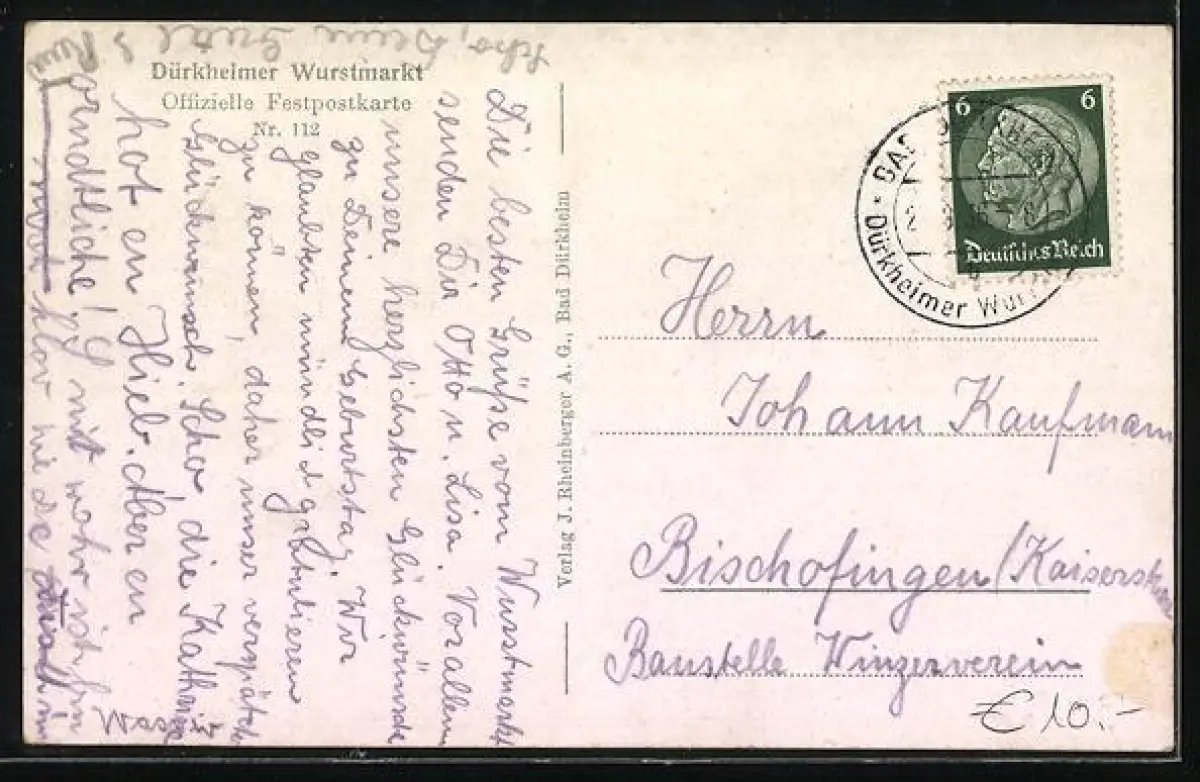 Dürkheimer Wurstmarkt
Offizielle Festpostkarte
Nr. 112
Die besten Grüße vom Wurstmarkt
senden Dir Otto u. Lisa. Vorallem
unsere herzlichsten Glückwünsche
zu Deinem Geburtstag. Wir
glaubten mündlich gratulieren
zu können, daher unser verspätete
Glückwünsch. Scho, die Kathrin
hot en Hieb. Aber en
orndtliche! mit wohr ich bin
klor wie de
Wasser
Scho, Deine
Verlag J. Rheinberger A. G., Bad Dürkheim
6 6
Deutsches Reich
BAD DÜRKHEIM
Dürkheimer Wurstmarkt
Herrn
Johann Kaufmann
Bischofingen (Kaiserstuhl
Baustelle Winzerverein
€ 10.-